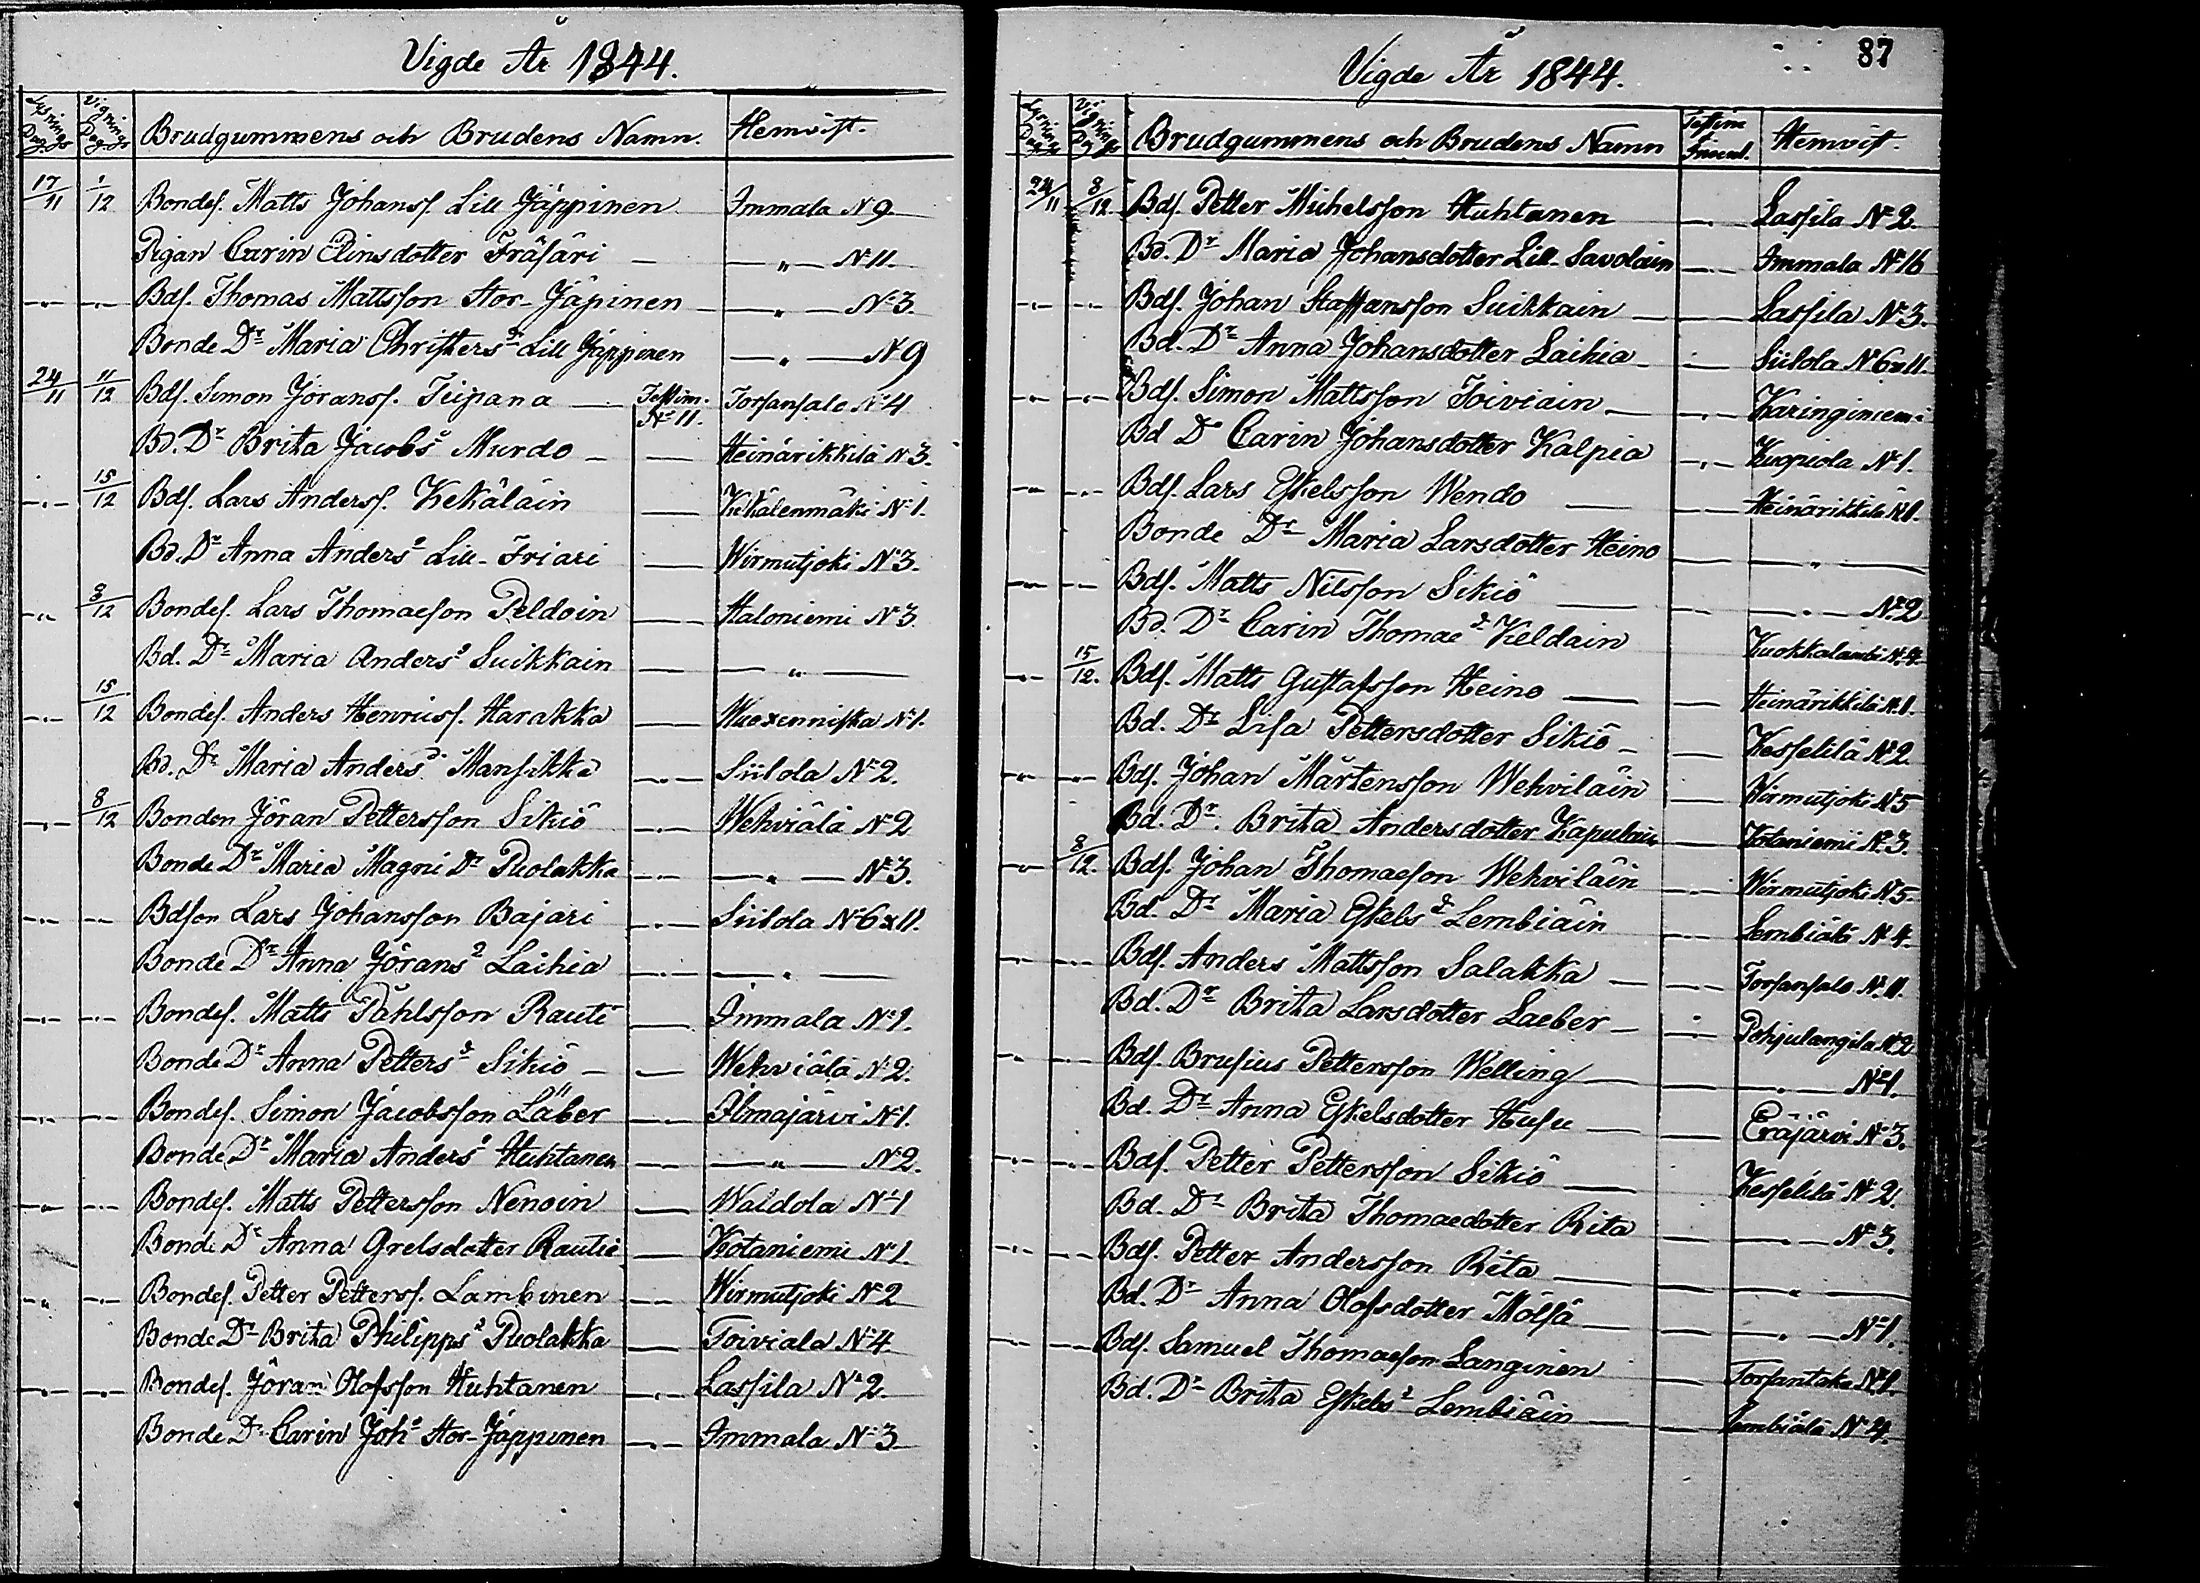 Vigde År 1844.
Lysnings Dag. Vignings Dag. Brudgummens och Brudens Namn. Hemvist.
17/11 1/12 Bondes. Matts Johanss. Lill Jäppinen Immala N 9
Pigan Carin Elinsdotter Fräsäri — „ — N 11.
Bds. Thomas Mattsson Stor-Jäpinen — „ — N 3.
Bonde Dr Maria Christers d Lill Jäppinen — „ — N 9
24/11 11/12 Bds. Simon Jöranss. Teipana — Testim. N 11. Torsansalo N 4
Bd. Dr Brita Jacobs d Murdo — Heinärikkilä N 3.
15/12 Bds. Lars Anderss. Kekäläin — Kekälenmäki N 1.
Bd. Dr Anna Anders d Lill-Friari — Wirmutjoki N 3.
8/12 Bondes. Lars Thomaeson Peldoin — Haloniemi N 3
Bd. Dr Maria Anders d Suikkain — „ —
15/12 Bondes. Anders Henricss. Harakka — Wuoxenniska N 1.
Bd. Dr Maria Anders d Mansikka — Siilola N 2.
8/12 Bonden Jöran Pettersson Sikiö — Wehviälä N 2
Bonde Dr Maria Magni Dr Puolakka — „ — N 3.
Bdson Lars Johansson Bajari — Siilola N 6 & 11.
Bonde Dr Anna Jörans d Laihia — „ —
Bondes. Matts Påhlsson Rautio — Immala N 1.
Bonde Dr Anna Petters d Sikiö — Wehviälä N 2.
Bondes. Simon Jacobsson Läber — Ilmajärvi N 1.
Bonde Dr Maria Anders d Huhtanen — „ — N 2.
Bondes. Matts Pettersson Nenoin — Waldola N 1
Bonde Dr Anna Grelsdotter Rautio — Kotaniemi N 1.
Bondes. Petter Petterss. Lambinen — Wirmutjoki N 2
Bonde Dr Brita Philipps d Puolakka — Toiviala N 4
Bondes. Jöran Olofsson Huhtanen — Lassila N 2.
Bonde Dr Carin Joh d Stor-Jäppinen — Immala N 3
87
Vigde År 1844.
Lysnings Dag Vignings Dag Brudgummens och Brudens Namn Hemvist.
24/11 8/12 Bds. Petter Michelsson Huhtanen — Lassila N 2.
Bd. Dr Maria Johansdotter Lill-Savolain — Immala N 16
Bds. Johan Staffansson Suikkain — Lassila N 3.
Bd. Dr Anna Johansdotter Laihia — Siilola N 6 & 11.
Bds. Simon Mattsson Toiviain — Karinginiemi
Bd Dr Carin Johansdotter Kalpia — Kuopiola N 1.
Bds. Lars Eskelsson Wendo — Heinärikkilä N 1.
Bonde Dr Maria Larsdotter Heino — „ —
Bds. Matts Nilsson Sikiö — „ — N 2
Bd. Dr Carin Thomae d Keldain Kuokkalambi N 4.
15/12. Bds. Matts Gustafsson Heino — Heinärikkilä N 1.
Bd. Dr Lisa Pettersdotter Sikiö — Kesselilä N 2
Bds. Johan Mårtensson Wehviläin — Wirmutjoki N 5
Bd. Dr. Brita Andersdotter Kapulain — Kotaniemi N 3.
8/12. Bds. Johan Thomaeson Wehviläin — Wirmutjoki N 5.
Bd. Dr Maria Eskels d Lembiäin — Lembiälä N 4.
Bds. Anders Mattsson Salakka — Torsansalo N 11.
Bd. Dr Brita Larsdotter Laeber — Pohjulangila N 2
Bds. Brusius Pettersson Welling — „ — N 1.
Bd. Dr Anna Eskelsdotter Husu — Eräjärvi N 3.
Bds. Petter Pettersson Sikiö — Kesselilä N 2.
Bd. Dr Brita Thomaedotter Rita — „ — N 3.
Bds. Petter Andersson Rita — „ —
Bd. Dr Anna Olofsdotter Mölsä — „ — N 1.
Bds. Samuel Thomaeson Langinen — Torsantaka N 1.
Bd. Dr Brita Eskels d Lembiäin — Lembiälä N 4.